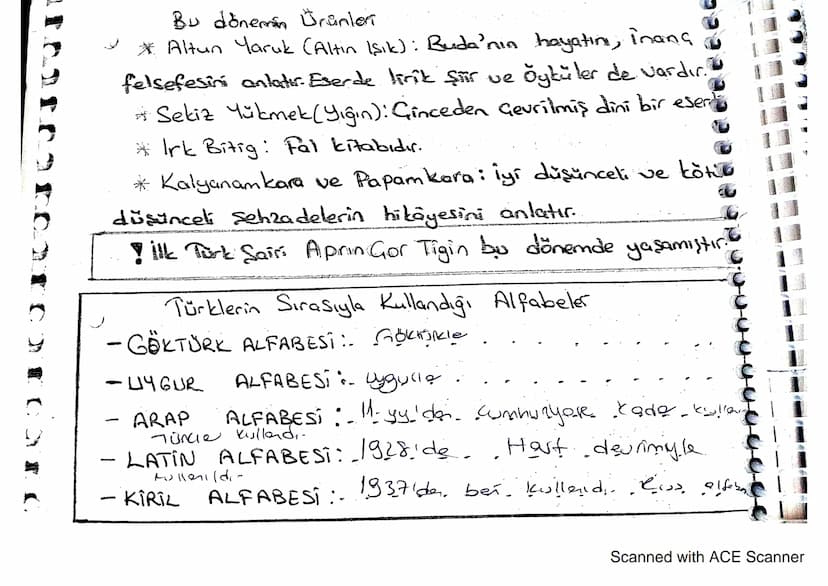 Bu dönemin Ürünleri
* Altun Yaruk (Altın Işık): Buda'nın hayatını, inanç
felsefesini anlatır. Eserde lirik şiir ve Öyküler de vardır.
* Sekiz Yükmek (Yığın): Çinceden Çevrilmiş dini bir eser
* Irk Bitig: Fal kitabıdır.
* Kalyanamkara ve Papamkara: iyi düşünceli ve kötü
düşünceli şehzadelerin hikâyesini anlatır.
! İlk Türk Şairi Aprın Çor Tigin bu dönemde yaşamıştır.
Türklerin Sırasıyla Kullandığı Alfabeler
- GÖKTÜRK ALFABESİ:
- UYGUR ALFABESİ:
- ARAP ALFABESİ: 11. yy'den
Türkler kullandı.
- LATİN ALFABESİ: 1928'de Harf devrimiyle
kullanıldı.
- KİRİL ALFABESİ: 1937'den beri kullandı.
Scanned with ACE Scanner